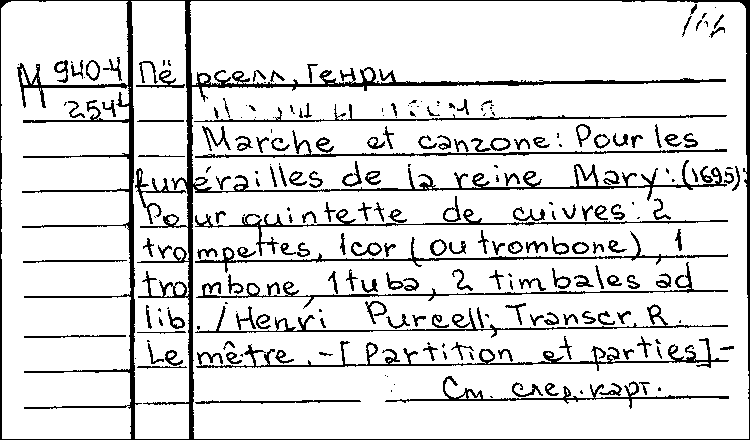 М 940-4 Пёрселл, Генри
254
Marche et canzone: Pour les
funérailles de la reine Mary: (1695):
Pour quintette de cuivres: 2
trompettes, 1 cor (ou trombone), 1
trombone, 1 tuba, 2 timbales ad
lib. / Henri Purcell; Transcr. R.
Lemêtre. - [Partition et parties]. -
См. след. карт.